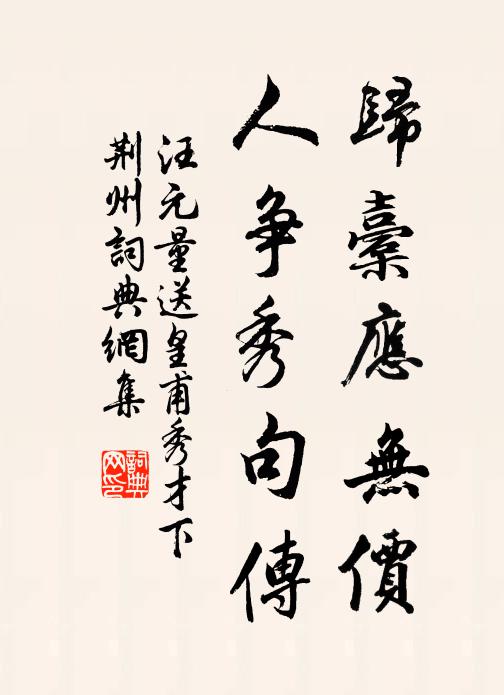 歸橐應無價
人爭秀句傳
汪元量送皇甫秀才下
荆州詞典網集
詞典
网印